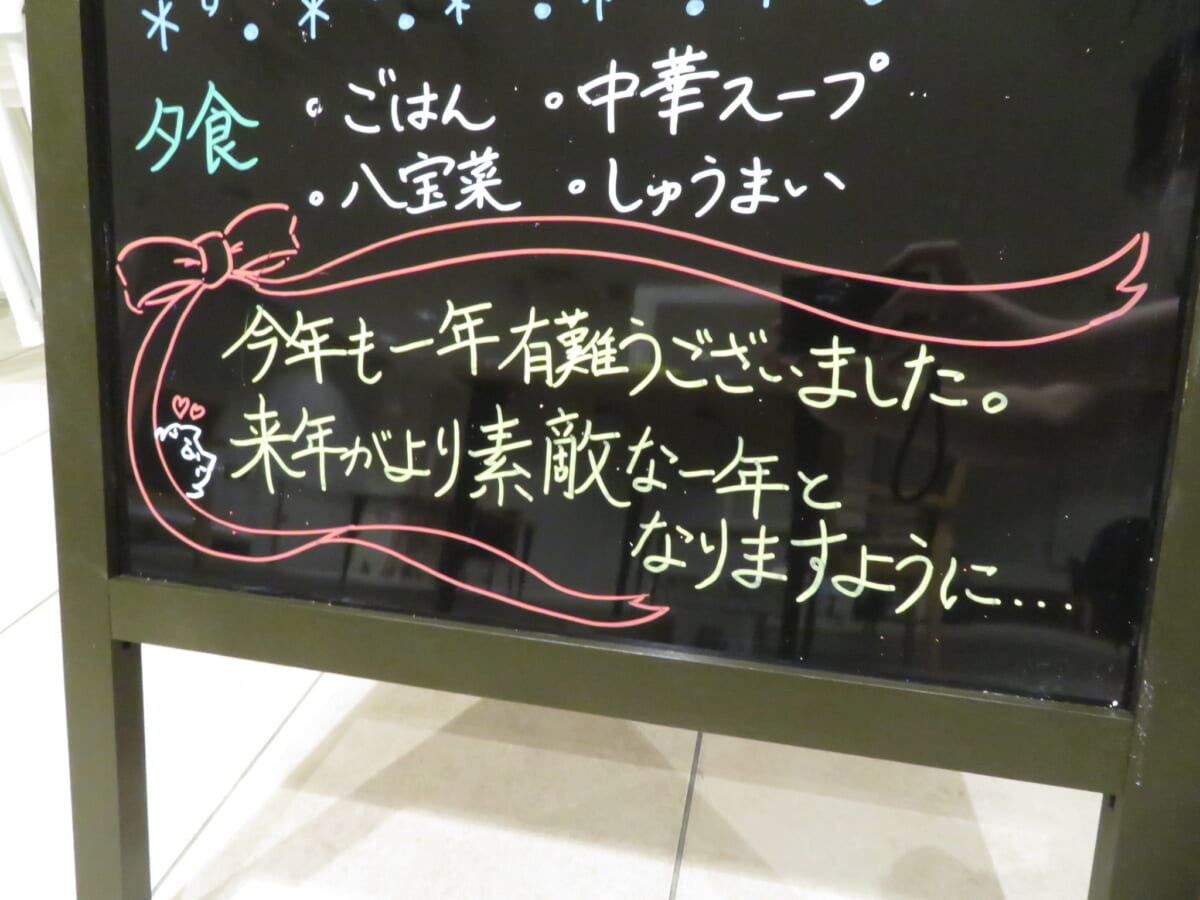 夕食 ・ごはん ・中華スープ
・八宝菜 ・しゅうまい
今年も一年有難うございました。
来年がより素敵な一年と
なりますように…